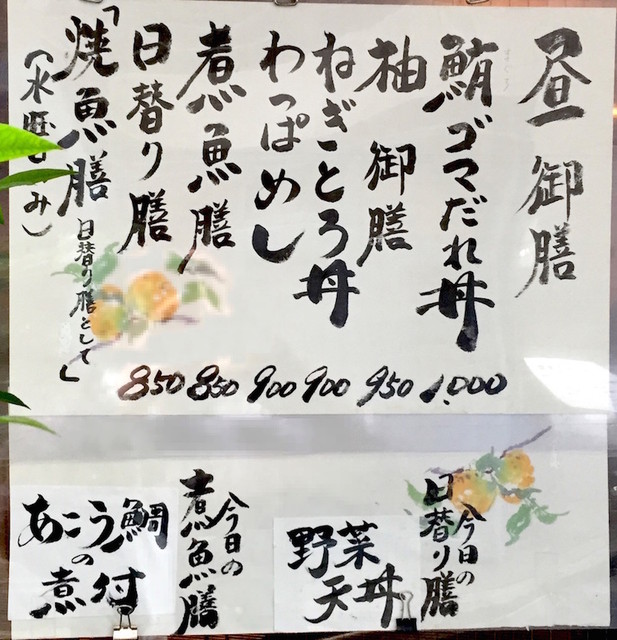 昼御膳
鮪ゴマだれ丼 1,000
柚御膳 950
ねぎとろ丼 900
わっぱめし 900
煮魚膳 850
日替り膳 850
「焼魚膳 日替り膳として」
(水曜日のみ)
今日の日替り膳
野菜天丼
今日の煮魚膳
あこう鯛の煮付